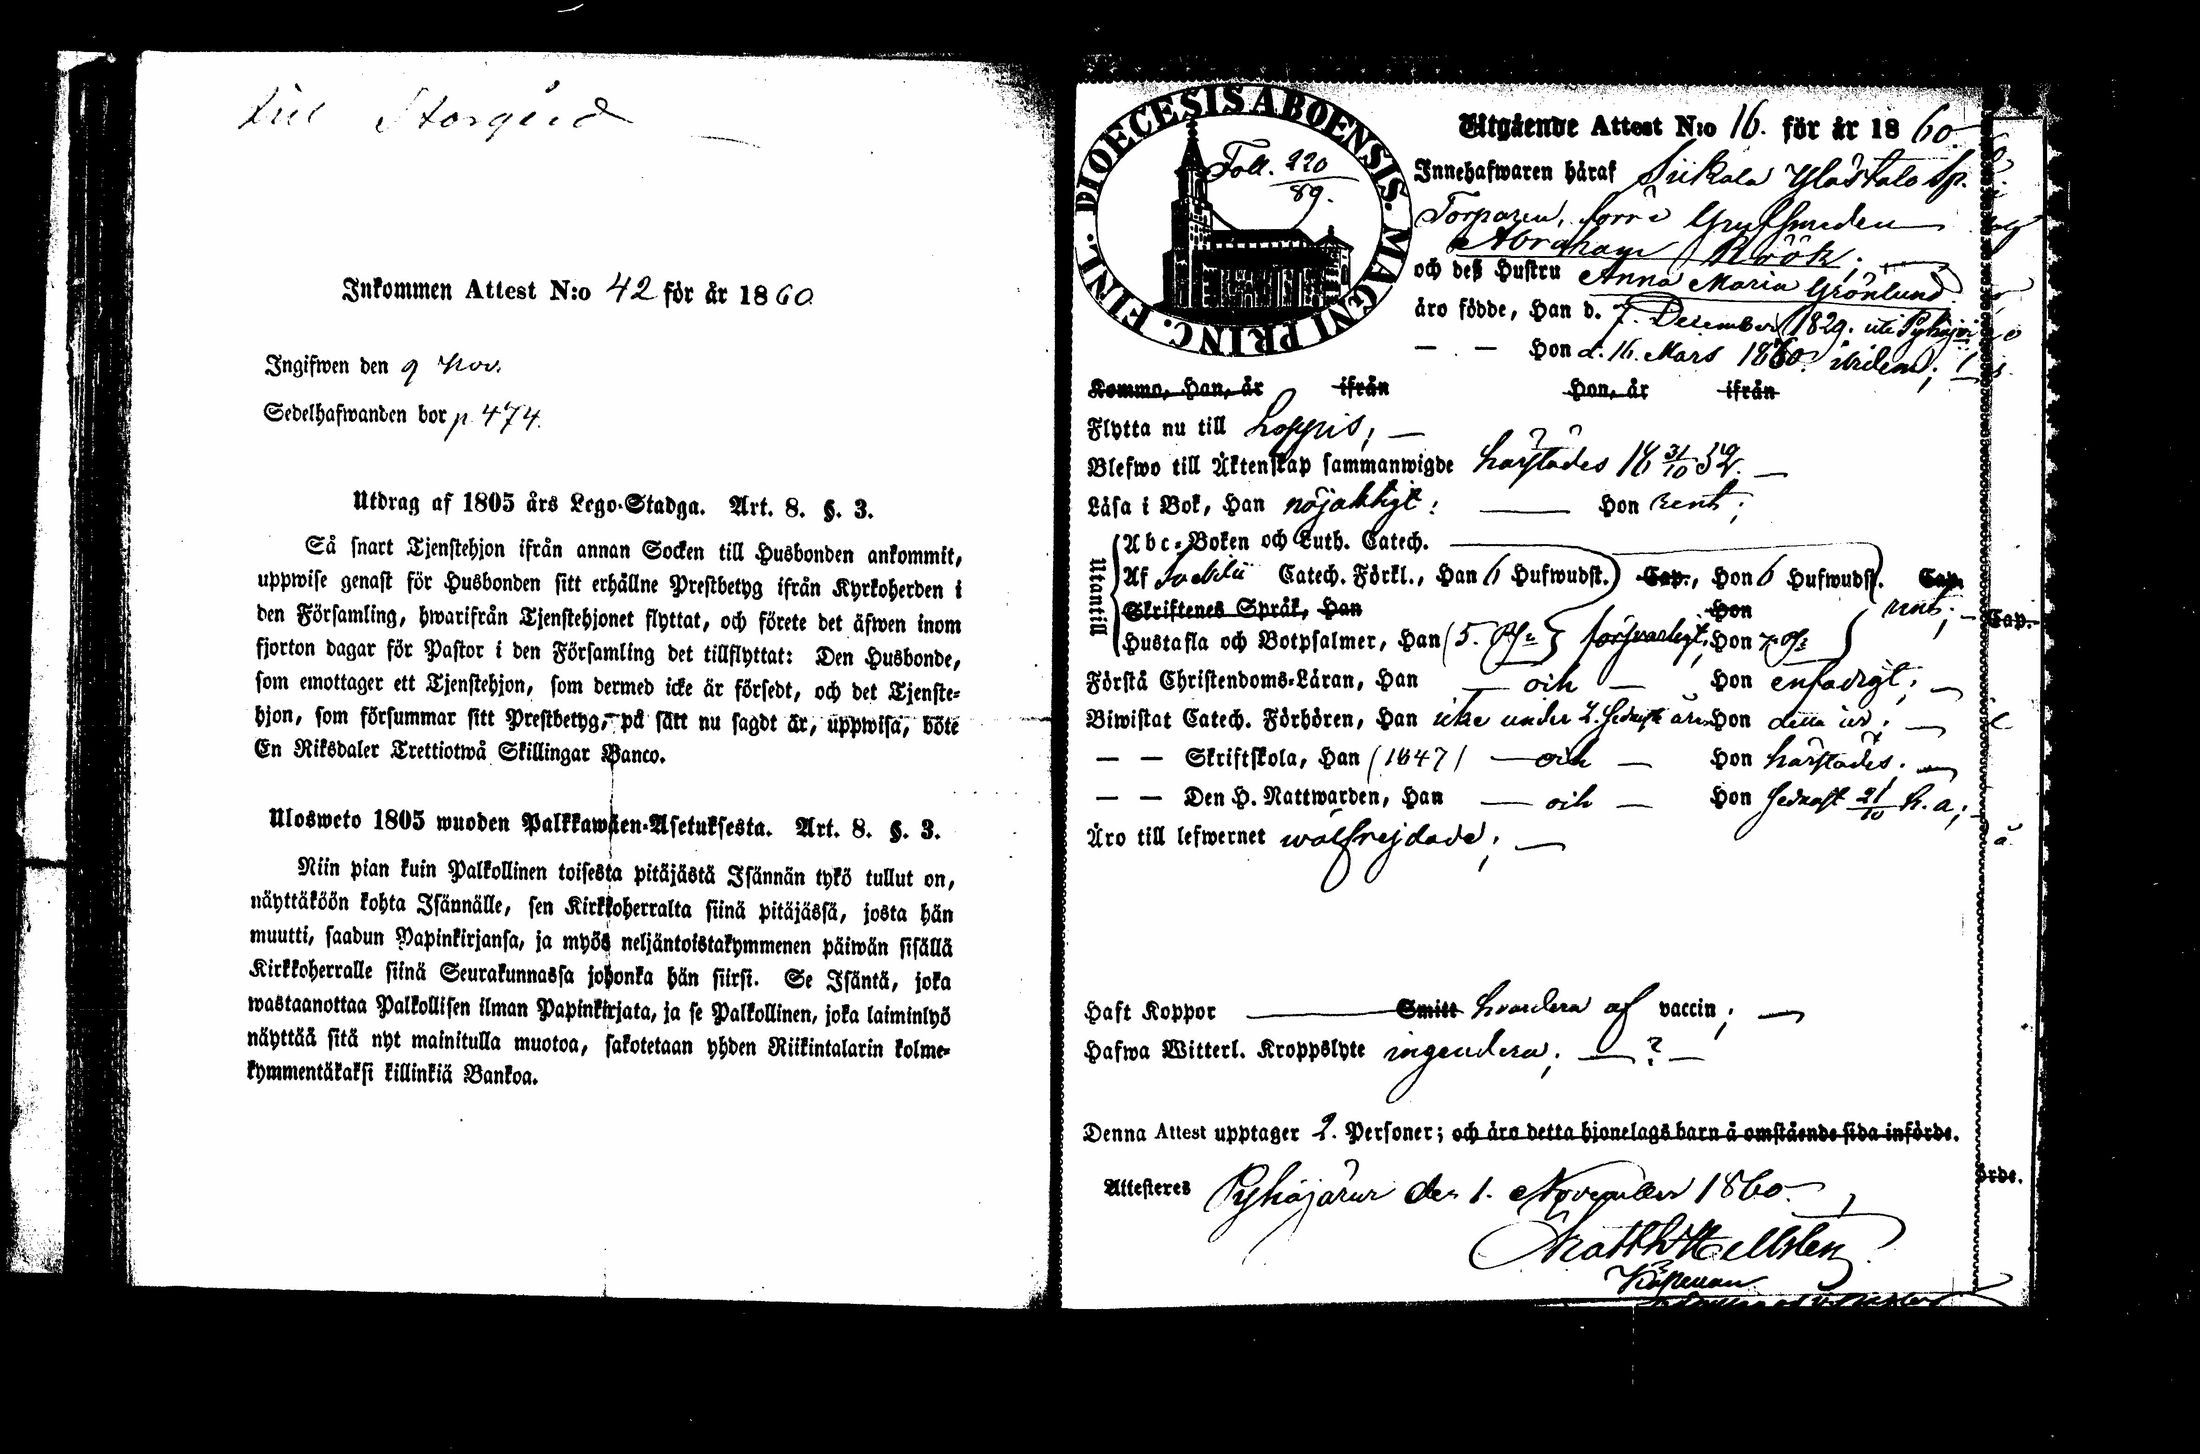 till Storgård
Inkommen Attest N:o 42 för år 1860
Ingifwen den 9 Nov.
Sedelhafwanden bor p. 474.
Utdrag af 1805 års Lego-Stadga. Art. 8. §. 3.
Så snart Tjenstehjon ifrån annan Socken till Husbonden ankommit,
uppwise genast för Husbonden sitt erhållne Prestbetyg ifrån Kyrkoherden i
den Församling, hwarifrån Tjenstehjonet flyttat, och förete det äfwen inom
fjorton dagar för Pastor i den Församling det tillflyttat: Den Husbonde,
som emottager ett Tjenstehjon, som dermed icke är försedt, och det Tjenste-
hjon, som försummar sitt Prestbetyg, på sätt nu sagdt är, uppwisa, böte
En Riksdaler Trettiotwå Skillingar Banco.
Ulosweto 1805 wuoden Palkkawäen-Asetuksesta. Art. 8. §. 3.
Niin pian kuin Palkollinen toisesta pitäjästä Isännän tykö tullut on,
näyttäköön kohta Isännälle, sen Kirkkoherralta siinä pitäjässä, josta hän
muutti, saadun Papinkirjansa, ja myös neljäntoistakymmenen päiwän sisällä
Kirkkoherralle siinä Seurakunnassa johonka hän siirsi. Se Isäntä, joka
wastaanottaa Palkollisen ilman Papinkirjata, ja se Palkollinen, joka laiminlyö
näyttää sitä nyt mainitulla muotoa, sakotetaan yhden Riikintalarin kolme-
kymmentäkaksi killinkiä Bankoa.
DIOECESIS ABOENSIS. MAGNI PRINC. FINL.
Foll. 220
89.
Utgående Attest N:o 16. för år 1860.
Innehafwaren häraf Sukala Ylöstalo
Torparen, förre
Abraham Röök,
och deß Hustru Anna Maria Grönlund
äro födde, Han d. 7. December 1829. uti Pyhäjoki
— — Hon d. 16. Mars ibidem;
Komma, Han, år ifrån Hon, år ifrån
Flytta nu till Loppis; —
Blefwo till Äktenskap sammanwigde härstädes 18 31/10 52. —
Läsa i Bok, Han nöjaktigt: — Hon rent;
Utantill
Abc-Boken och Luth. Catech.
Af Catech. Förkl., Han 6 Hufwudst. Cap., Hon 6 Hufwudst. Cap.
Skriftenes Språk, Han Hon rent; —
Hustafla och Botpsalmer, Han (5. försvarligt; Hon 7.
Förstå Christendoms-Läran, Han — och — Hon enfadigt; —
Biwistat Catech. Förhören, Han icke under 2. Hon detta år; —
— — Skriftskola, Han (1847) — och — Hon härstädes. —
— — Den H. Nattwarden, Han — och — Hon sednast 21/10 h. a.;
Äro till lefwernet wälfrejdade; —
Haft Koppor — Smitt hvardera af vaccin; —
Hafwa Witterl. Kroppslyte ingendera; — ? —
Denna Attest upptager 2. Personer; och äro detta hjonelags barn å omstående sida införde.
Attesteres Pyhäjärwi den 1. November 1860.
Matth. Hellsten
Cap.
örde.